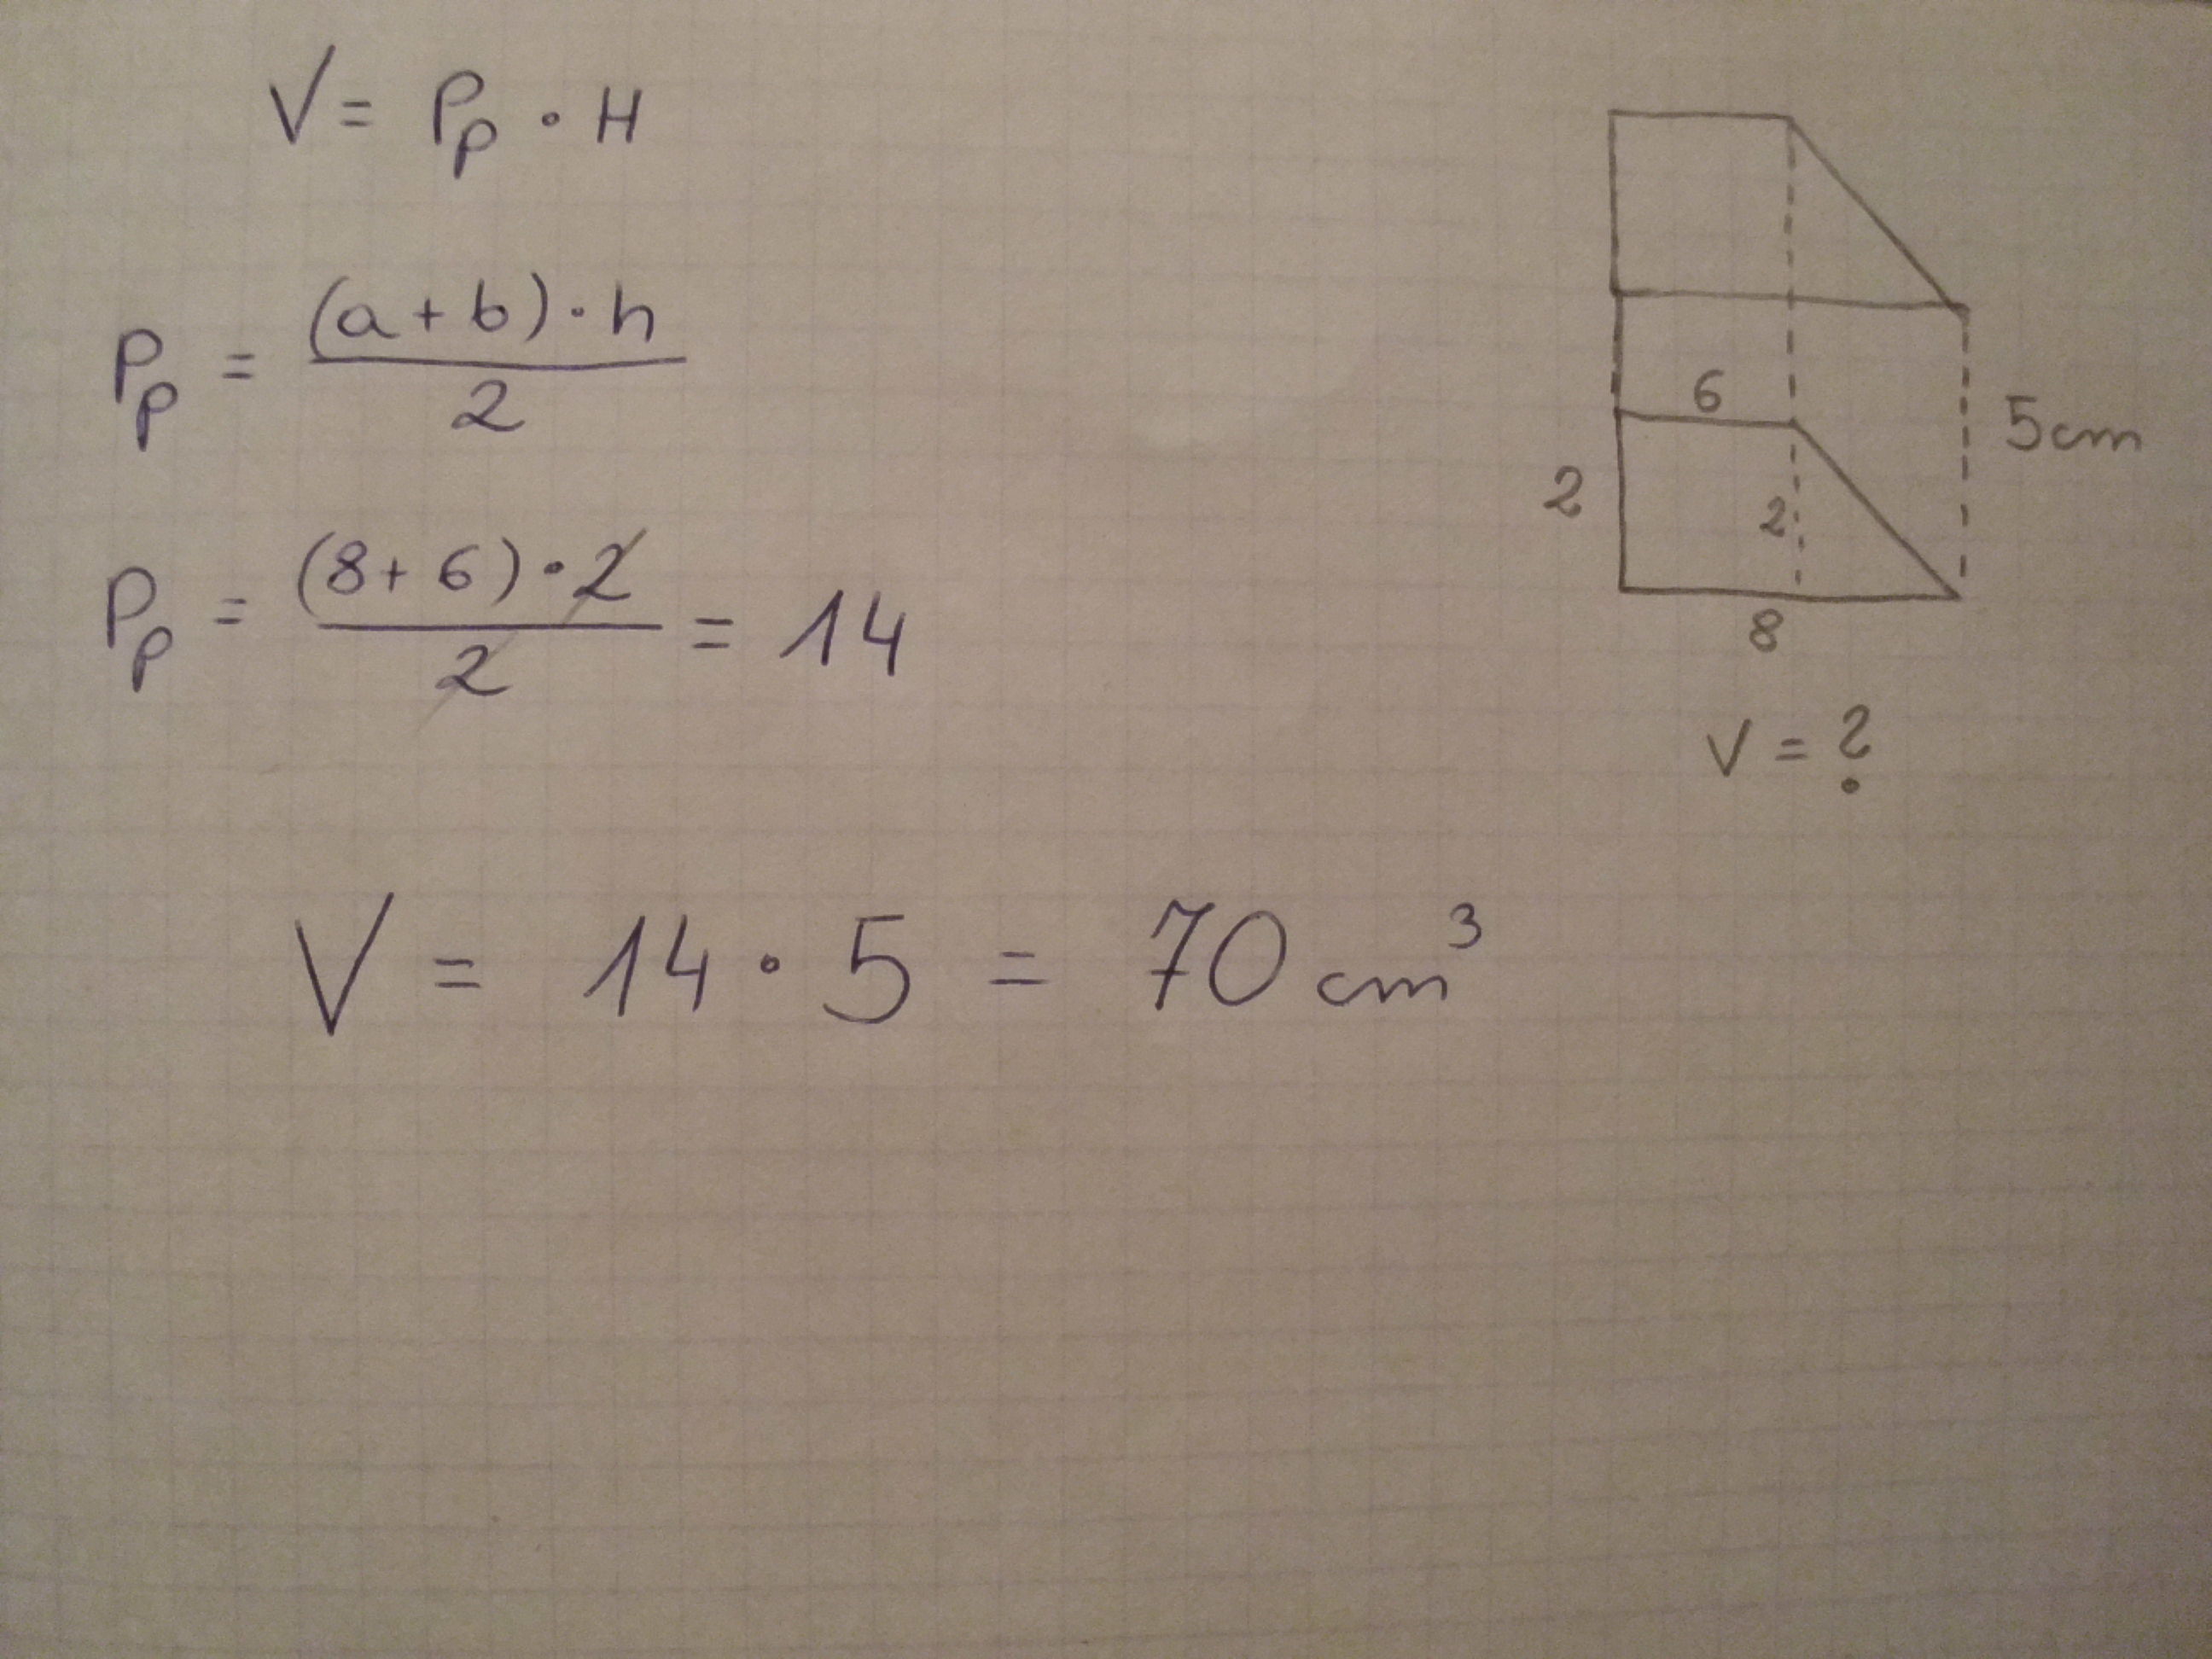 V = Pp · H
Pp = (a + b) · h / 2
Pp = (8 + 6) · 2 / 2 = 14
V = 14 · 5 = 70 cm³
6
5cm
2
2
8
V = ?